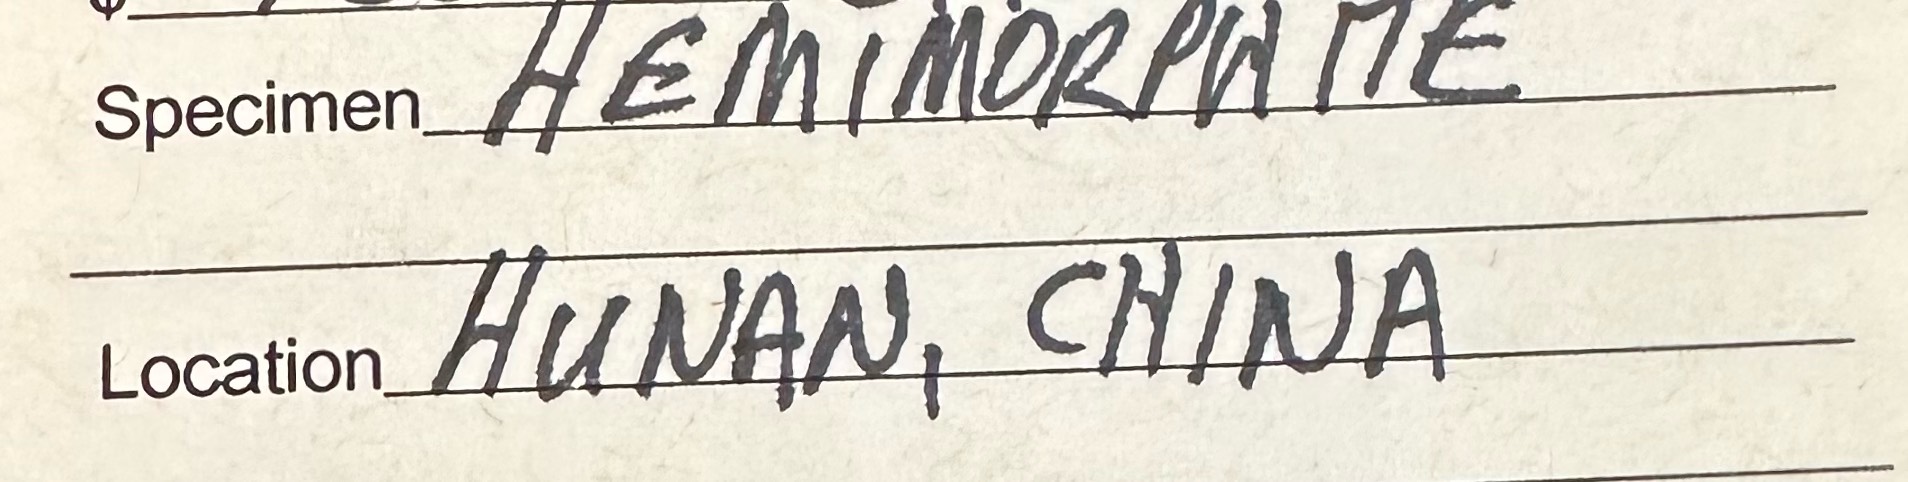 Specimen HEMIMORPHITE
Location HUNAN, CHINA